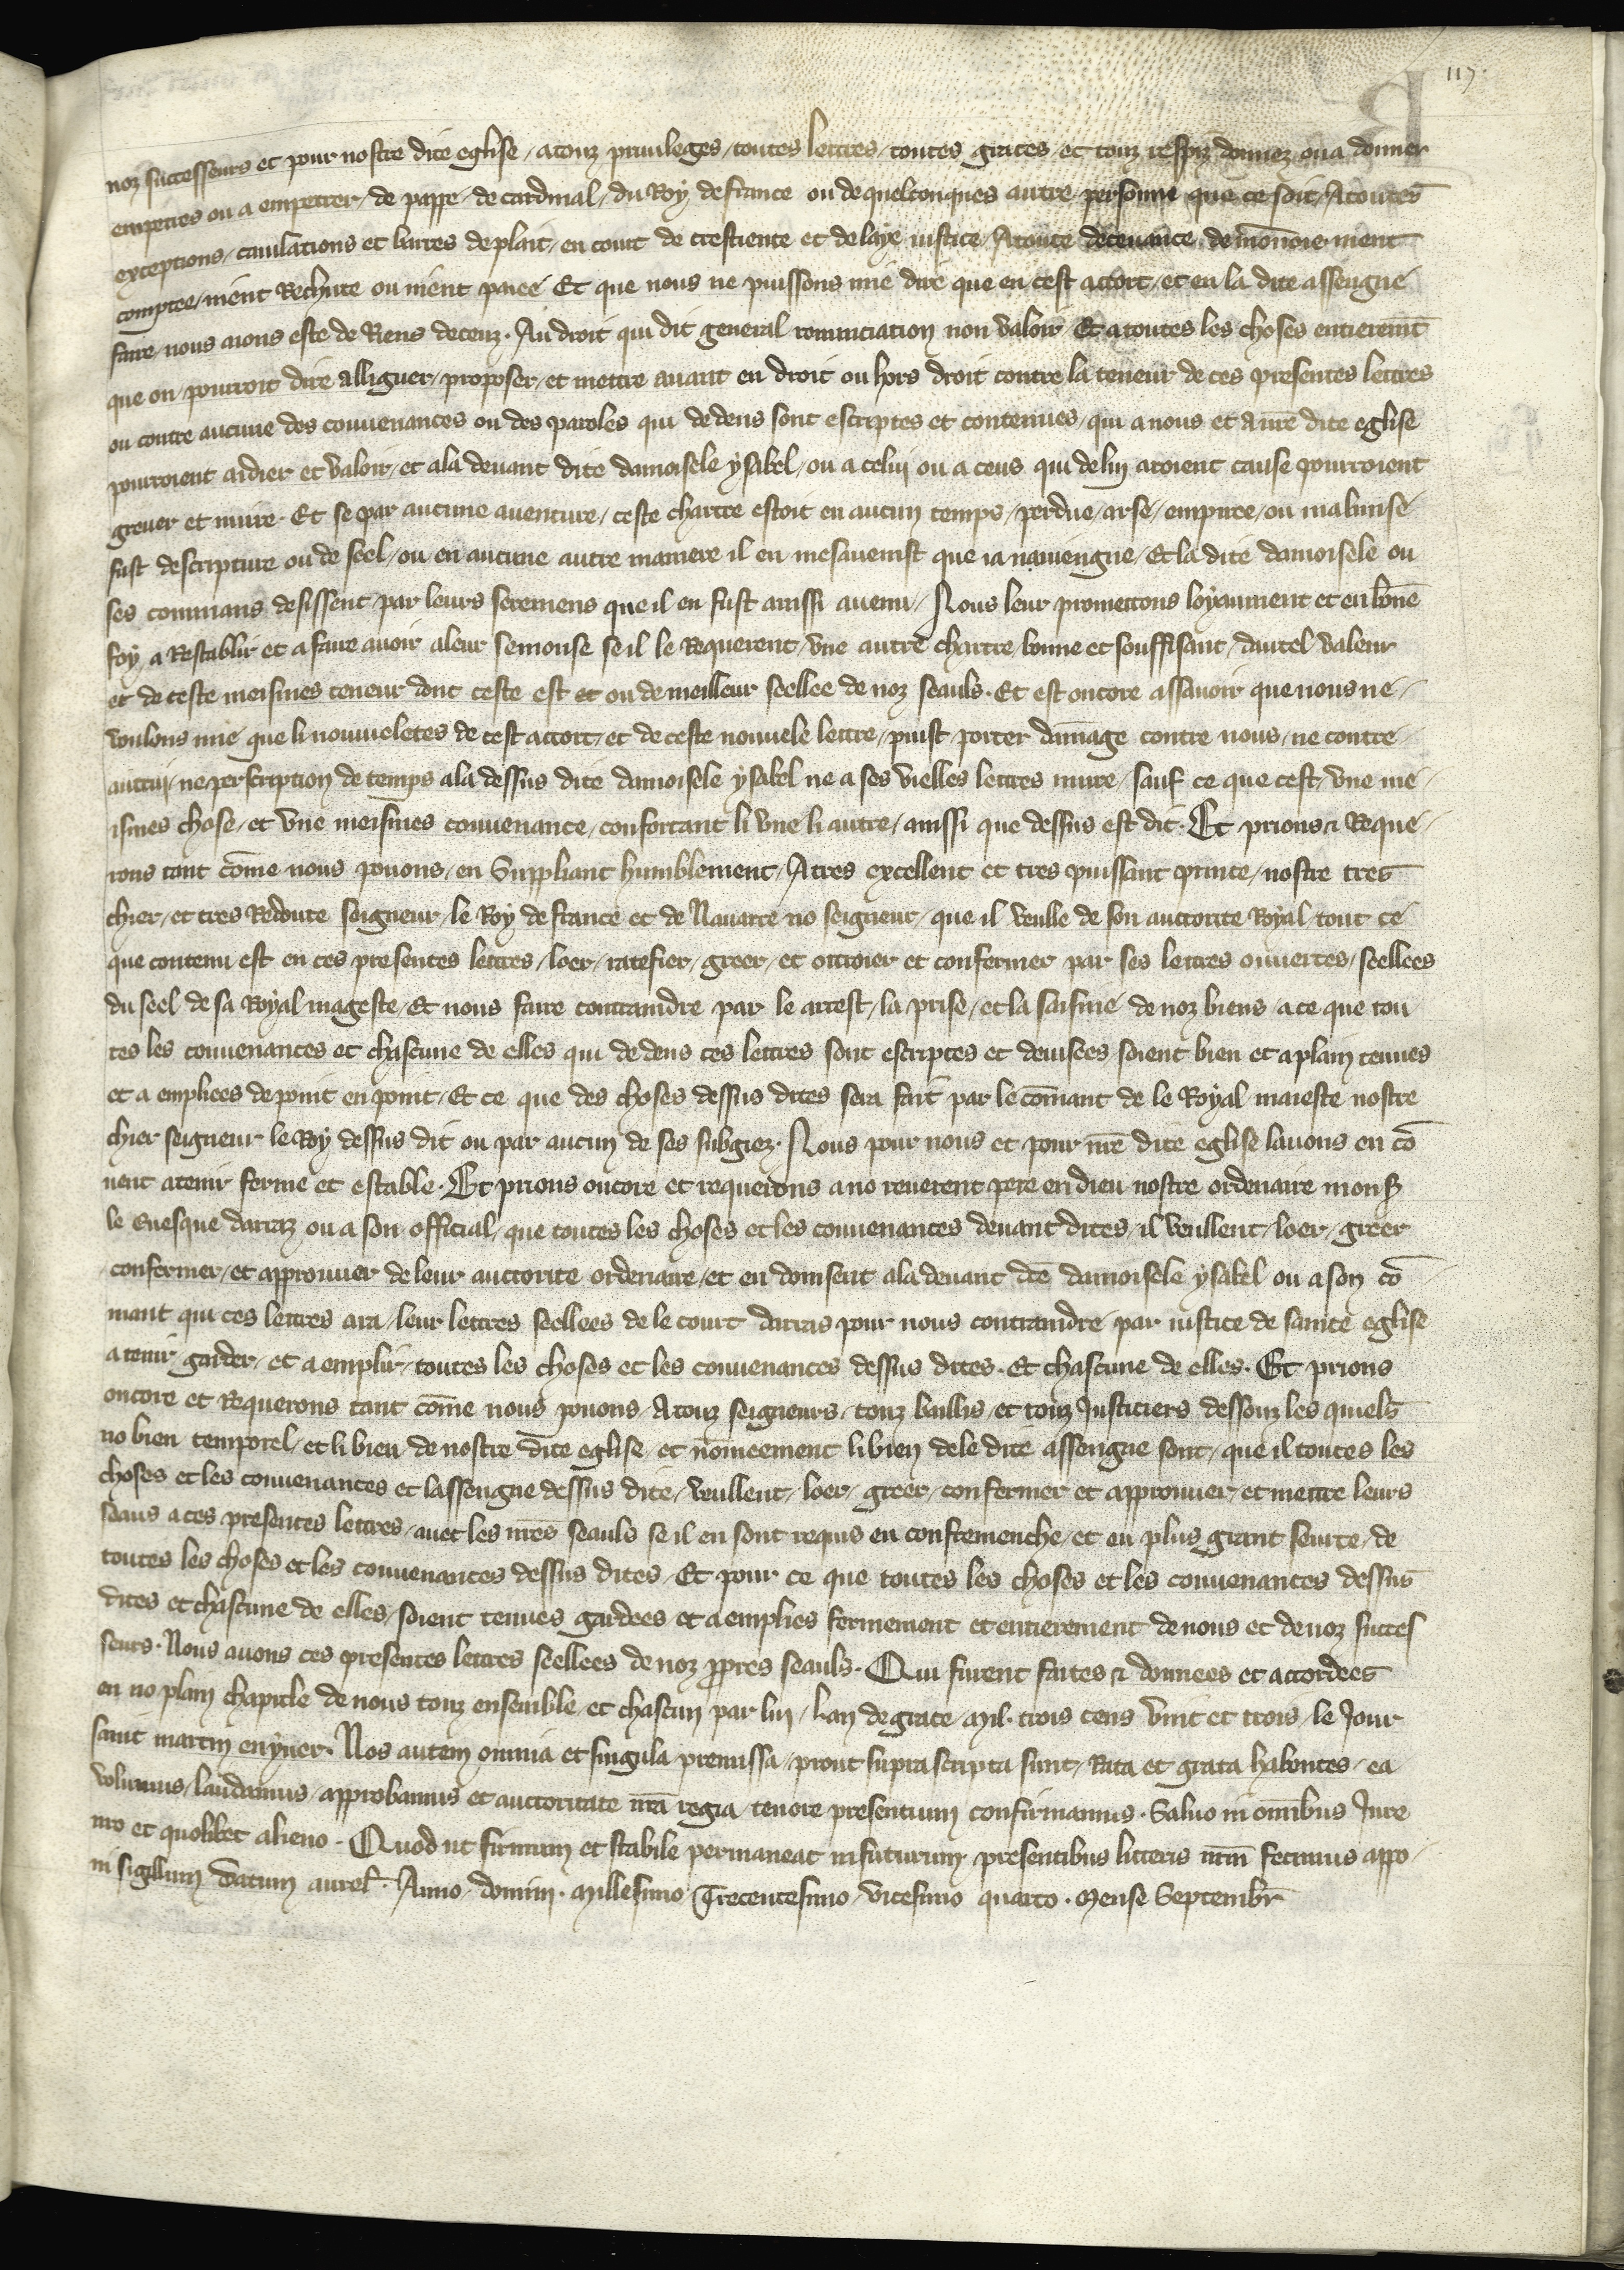 117.
noz successeurs et pour nostre dite eglise / a touz priuileges / toutes lettres / toutes graces / et touz respiz donnez ou a donner
empetres ou a empetrer / de pappe / de cardinal / du Roy de france ou de quelconques autre personne que ce soit / A toutes
exceptions / cauilations et barres de plait / en court de crestiente et de laye iustice / A toute deceuance de monnoie nient
comptee / nient Rechute ou nient paiee Et que nous ne puissons mie dire que en cest accort / et en la dite assengne
faire / nous aions este de Riens deceuz . Au droit qui dit general renunciation non valoir Et a toutes les choses entierem̄t
que on pourroit dire alliguer / proposer / et mettre auant en droit ou hors droit contre la teneur de ces presentes lettres
ou contre aucune des conuenances ou des paroles qui dedens sont escriptes et contenues / qui a nous et a nr̄e dite eglise
pourroient aidier et valoir / et a la deuant dite damoisele ysabel / ou a celui ou a ceus qui de lui aroient cause pourroient
greuer et nuire . Et se par aucune auenture / ceste chartre estoit en aucun temps / perdue / arse / empiree / ou malmise
fust descripture ou de seel / ou en aucune autre maniere il en mesauenist que ia nauiengne / Et la dite damoisele ou
ses commans desissent par leurs seremens que il en fust aussi auenu / Nous leur promettons loyaument et en bōne
foy a Restablir et a faire auoir a leur semonse se il le Requerent / vne autre chartre bonne et souffisant / dautel valeur
et de ceste meismes teneur dont ceste est et ou de meilleur seellee de noz seauls . Et est oncore assauoir que nous ne
voulons mie que li nouueletes de cest accort / et de ceste nouuele lettre / puist porter dām̄age contre nous / ne contre
autrui / ne perscription de temps a la dessus dite damoisele ysabel ne a ses vielles lettres nuire / sauf ce que cest vne me
ismes chose / et vne meismes conuenance / confortant li vne li autre / aussi que dessus est dit . Et prions & Reque
rons tant cōme nous pouons / en Suppliant humblement / A tres excellent et tres puissant prince / nostre tres
chier / et tres Redoute seigneur / le Roy de france et de Nauarre no seigneur / que il veulle de son auctorite Royal / tout ce
que contenu est en ces presentes lettres / loer / ratefier / greer / et ottroier et confermer par ses lettres ouuertes / seellees
du seel de sa Royal mageste / Et nous faire contraindre par le arrest / la prise / et la saisine de noz biens / a ce que tou
tes les conuenances et chascune de elles qui dedens ces lettres sont escriptes et deuisees soient bien et a plain tenues
et a emplies de point en point / Et ce que des choses dessus dites sera fait par le cōmant de le Royal maieste nostre
chier seigneur le Roy dessus dit ou par aucun de ses subgiez . Nous pour nous et pour nr̄e dite eglise lauons en cō
uent a tenir ferme et estable . Et prions oncore et requerons a no reuerent pere en dieu nostre ordenaire mons̄
le Euesque darraz ou a son official / que toutes les choses et les conuenances deuant dites / il veullent / loer / greer
confermer / et approuuer de leur auctorite ordenaire / et en donsent a la deuant dc̄e damoisele ysabel ou a son cō
mant qui ces lettres ara / leur lettres seellees de le court darras pour nous contraindre par iustice de sainte eglise
a tenir garder / et a emplir / toutes les choses et les conuenances dessus dites . Et chascune de elles . Et prions
oncore et Requerons tant cōme nous pouons / A touz seigneurs / touz baillis / et touz Justiciers dessouz les quiels
no bien temporel / et li bien de nostre dite eglise / et nōmeement li bien de le dite assengne sont / que il toutes les
choses et les conuenances et lassengne dessus dite / veullent / loer / greer / confermer et approuuer / et mettre leurs
seaus a ces presentes lettres / auec les nr̄es seauls se il en sont requis en confremenche / et en plus grant seurte / de
toutes les choses et les conuenances dessus dites / Et pour ce que toutes les choses et les conuenances dessus
dites et chascune de elles / soient tenues gardees et a emplies fermement et entierement de nous et de noz succes
seurs . Nous auons ces presentes lettres seellees de noz ꝓpres seauls . Qui furent faites & donnees et accordees
en no plain chapitle de nous touz ensemble / et chascun par lui / Lan de grace mil . trois cens vint et trois / le Jour
saint martin en yuer . Nos autem omnia et singula premissa / prout suprascripta sunt / Rata et grata habentes / ea
volumus / laudamus / approbamus et auctoritate nr̄a regia / tenore presentium confirmamus . Saluo in omībus Jure
nr̄o et quolibet alieno . Quod ut firmum et stabile permaneat in futurum / presentibus litteris nr̄m fecimus appo
ni sigillum Datum aurel̄ . Anno domini . Millesimo Trecentesimo vicesimo quarto . Mense Septembr̄